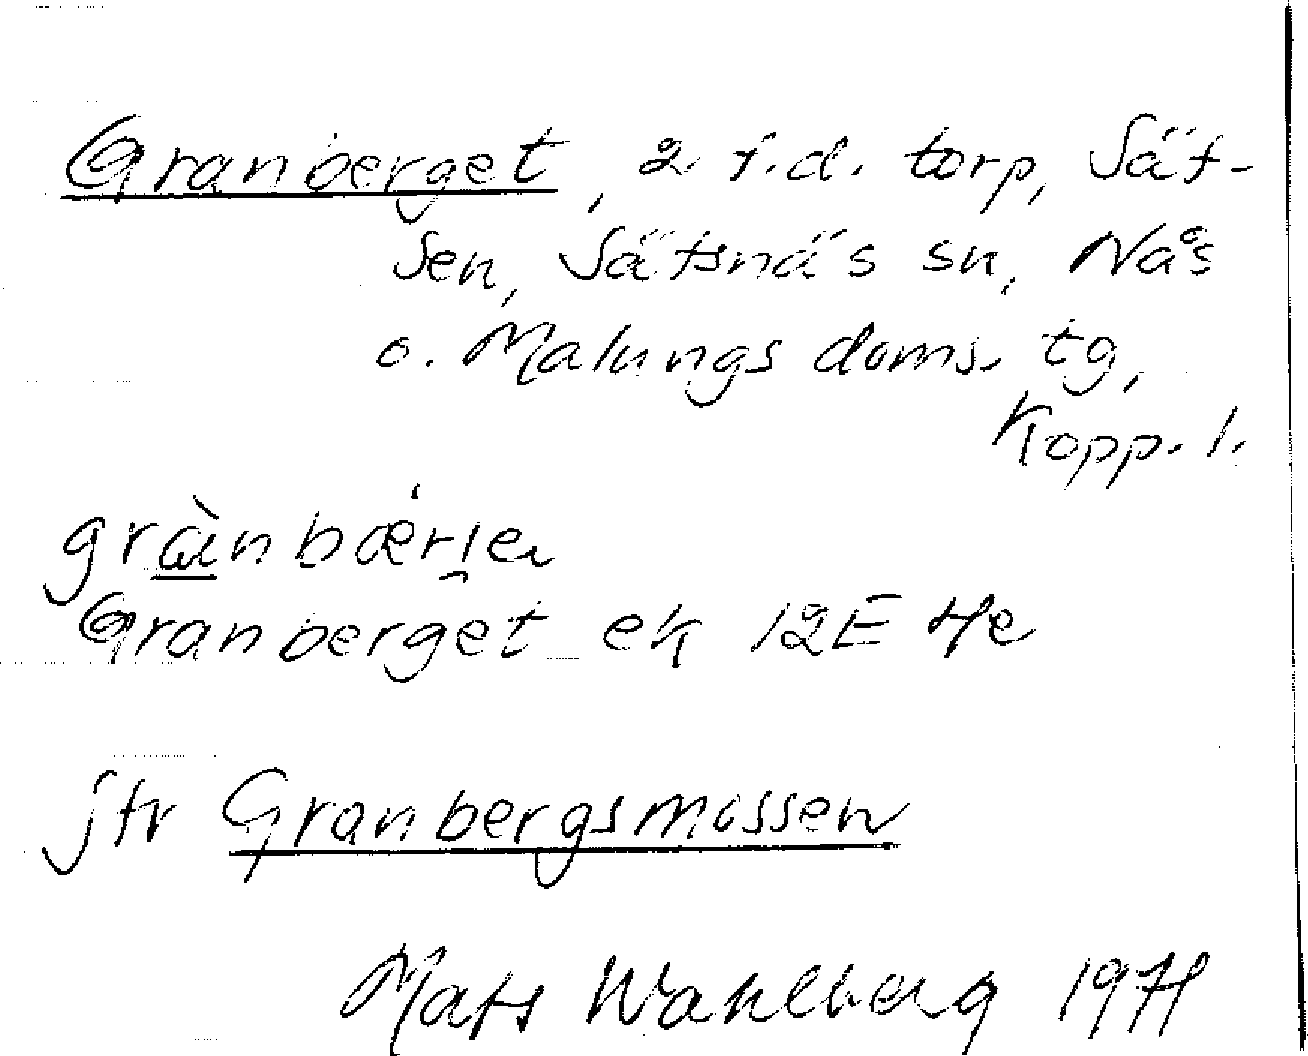 Granberget, 2 f.d. torp, Sät-
sen, Sätsnäs sn, Nås
o. Malungs doms. tg,
Kopp. l.
Granberget ek 12E 4e
jfr Granbergsmossen
Mats Wahlberg 1971